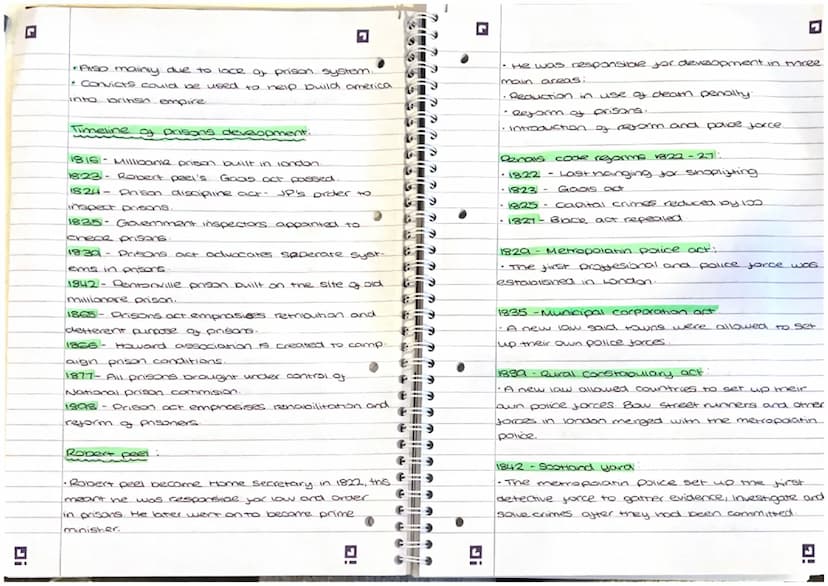 • Also mainly due to lack of prison system.
• Convicts could be used to help build america
into british empire
Timeline of prisons development:
1816 - Millbank prison built in london.
1823 - Robert peel's Gaols act passed.
1824 - Prison discipline act - JP's order to
inspect prisons.
1835 - Government inspectors appointed to
check prisons.
1839 - Prisons act advocates seperate syst-
ems in prisons.
1842 - Pentonville prison built on the site of old
prison.
1865 - Prisons act emphasises retribution and
deterrent purpose of prisons.
1866 - Howard association is created to camp-
aign prison conditions.
1877 - All prisons brought under control of
National prison commision.
1898 - Prison act emphasises rehabilitation and
reform of prisoners.
Robert peel:
• Robert peel became Home secretary in 1822, this
meant he was responsible for law and order
in prisons. He later went on to become prime
minister.
• He was responsible for development in three
main areas:
• Reduction in use of death penalty.
• Reform of prisons.
• Introduction of reform and police force
Penal code reforms 1822 - 27:
• 1822 - Last hanging for shoplifting
• 1823 - Gaols act
• 1825 - Capital crimes reduced by 100
• 1827 - Black act repealed
1829 - Metropolatin police act:
• The first proffesional and police force was
established in London.
1835 - Municipal corporation act
• A new law said towns were allowed to set
up their own police forces.
1839 - Rural constabulary act:
• A new law allowed countries to set up their
own police forces. Bow street runners and other
forces in london merged with the metropolatin
police.
1842 - Scotland yard
• The metropolatin police set up the first
detective force to gather evidence, investigate and
solve crimes after they had been committed.